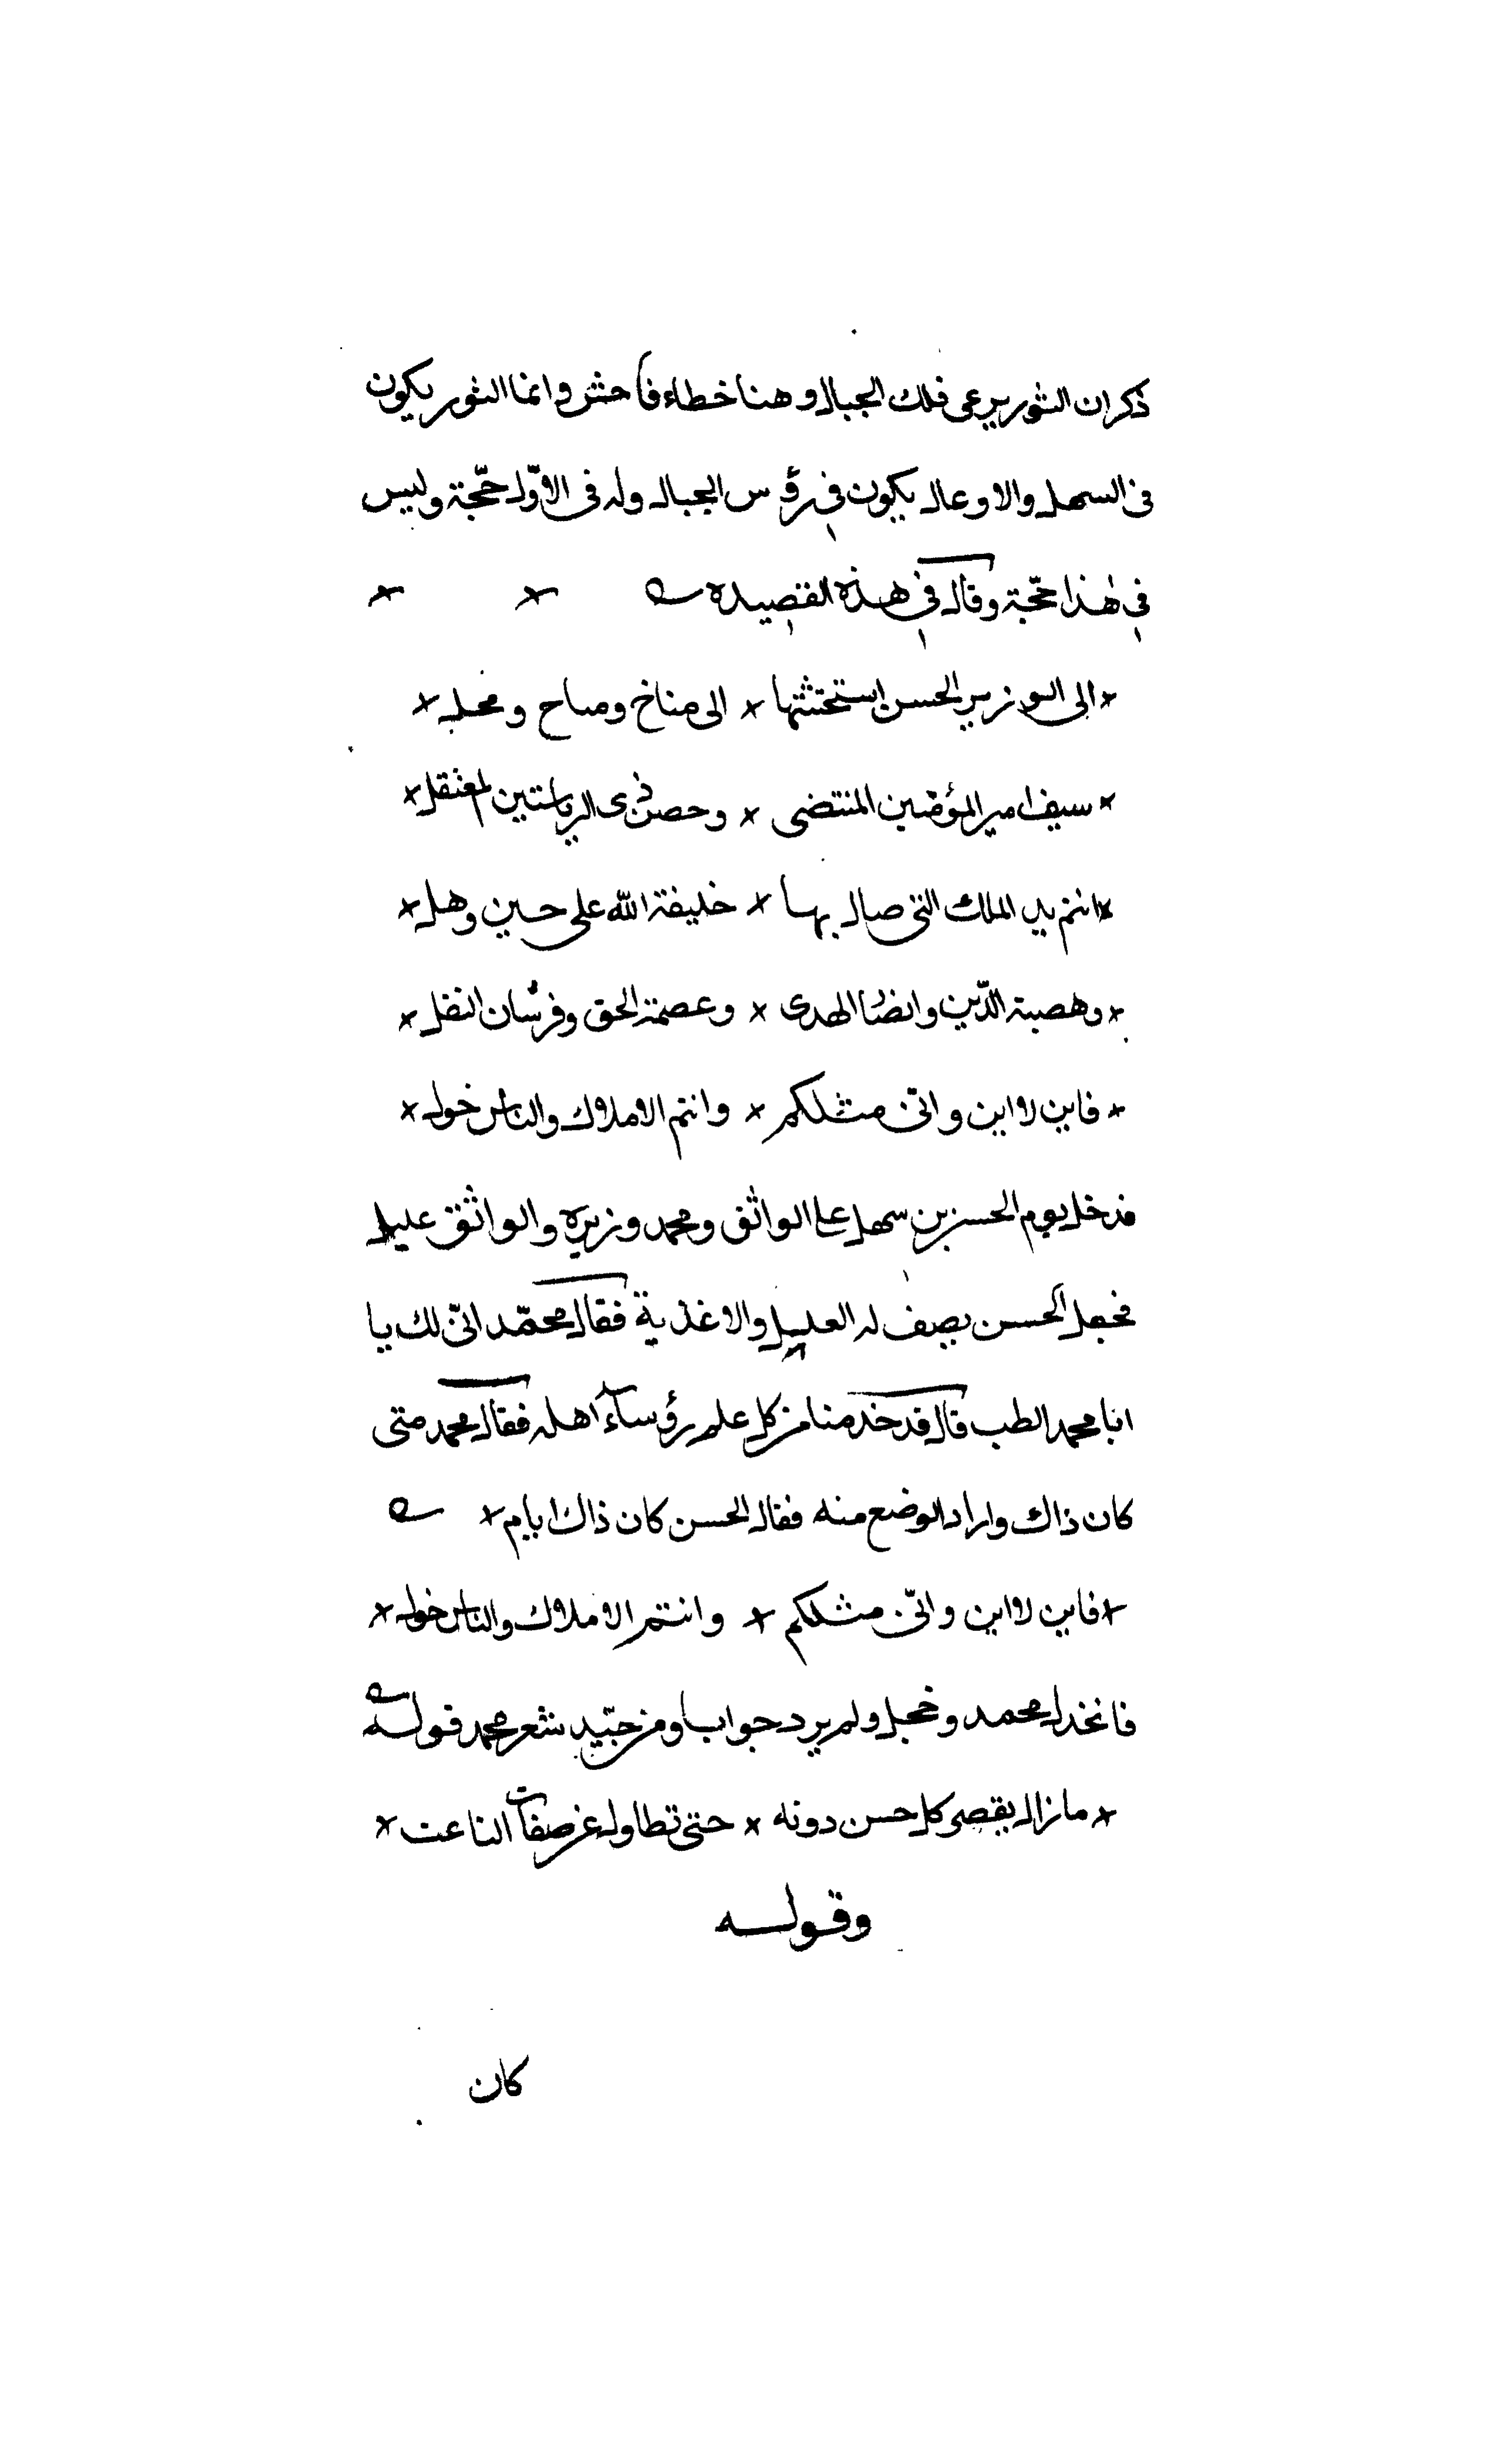 ذكر ان الثور يرعى فلك الجبال وهنا خطاء فاحش وانما الثور يكون
في السهل والاوعال يكون في رؤس الجبال وله في الاوّل حجّة وليس
في هٰذا حجّة وقال في هذه القصيده
* الى الوزير الحسن استحثثها * الى مناخ ومباح ومحل *
* سيف امير المؤمنين المنتضى * وحصن ذى الرياستين المعتقل *
* انتم يد الملك التى صال بها * خليفة الله على حين وهل *
* وهضبة الدّين وانصٰا الهدى * وعصمة الحق وفرسان النفل *
* فاين لا اين وانّى مثلكم * وانتم الاملاك والناس خول *
فدخل يوم الحسن بن سهل على الواثق ومحمد وزيره والواثق عليل
فجعل الحسن يصف له العليل والاغذية فقال محمّد انّى لك يا
ابا محمد الطب قال قد خد منا من كل علم رؤساء اهله فقال محمد متى
كان ذاك واراد الوضع منه فقال الحسن كان ذاك ايام *
* فاين لا اين وانّى مثلكم * وانتم الاملاك والناس خول *
فانخذل محمد وخجل ولم يرد جوابا ومن جيّد شعر محمد قوله
* مازال يقصر كل حسن دونه * حتى تطاول عن صفات الناعت *
وقوله
كان